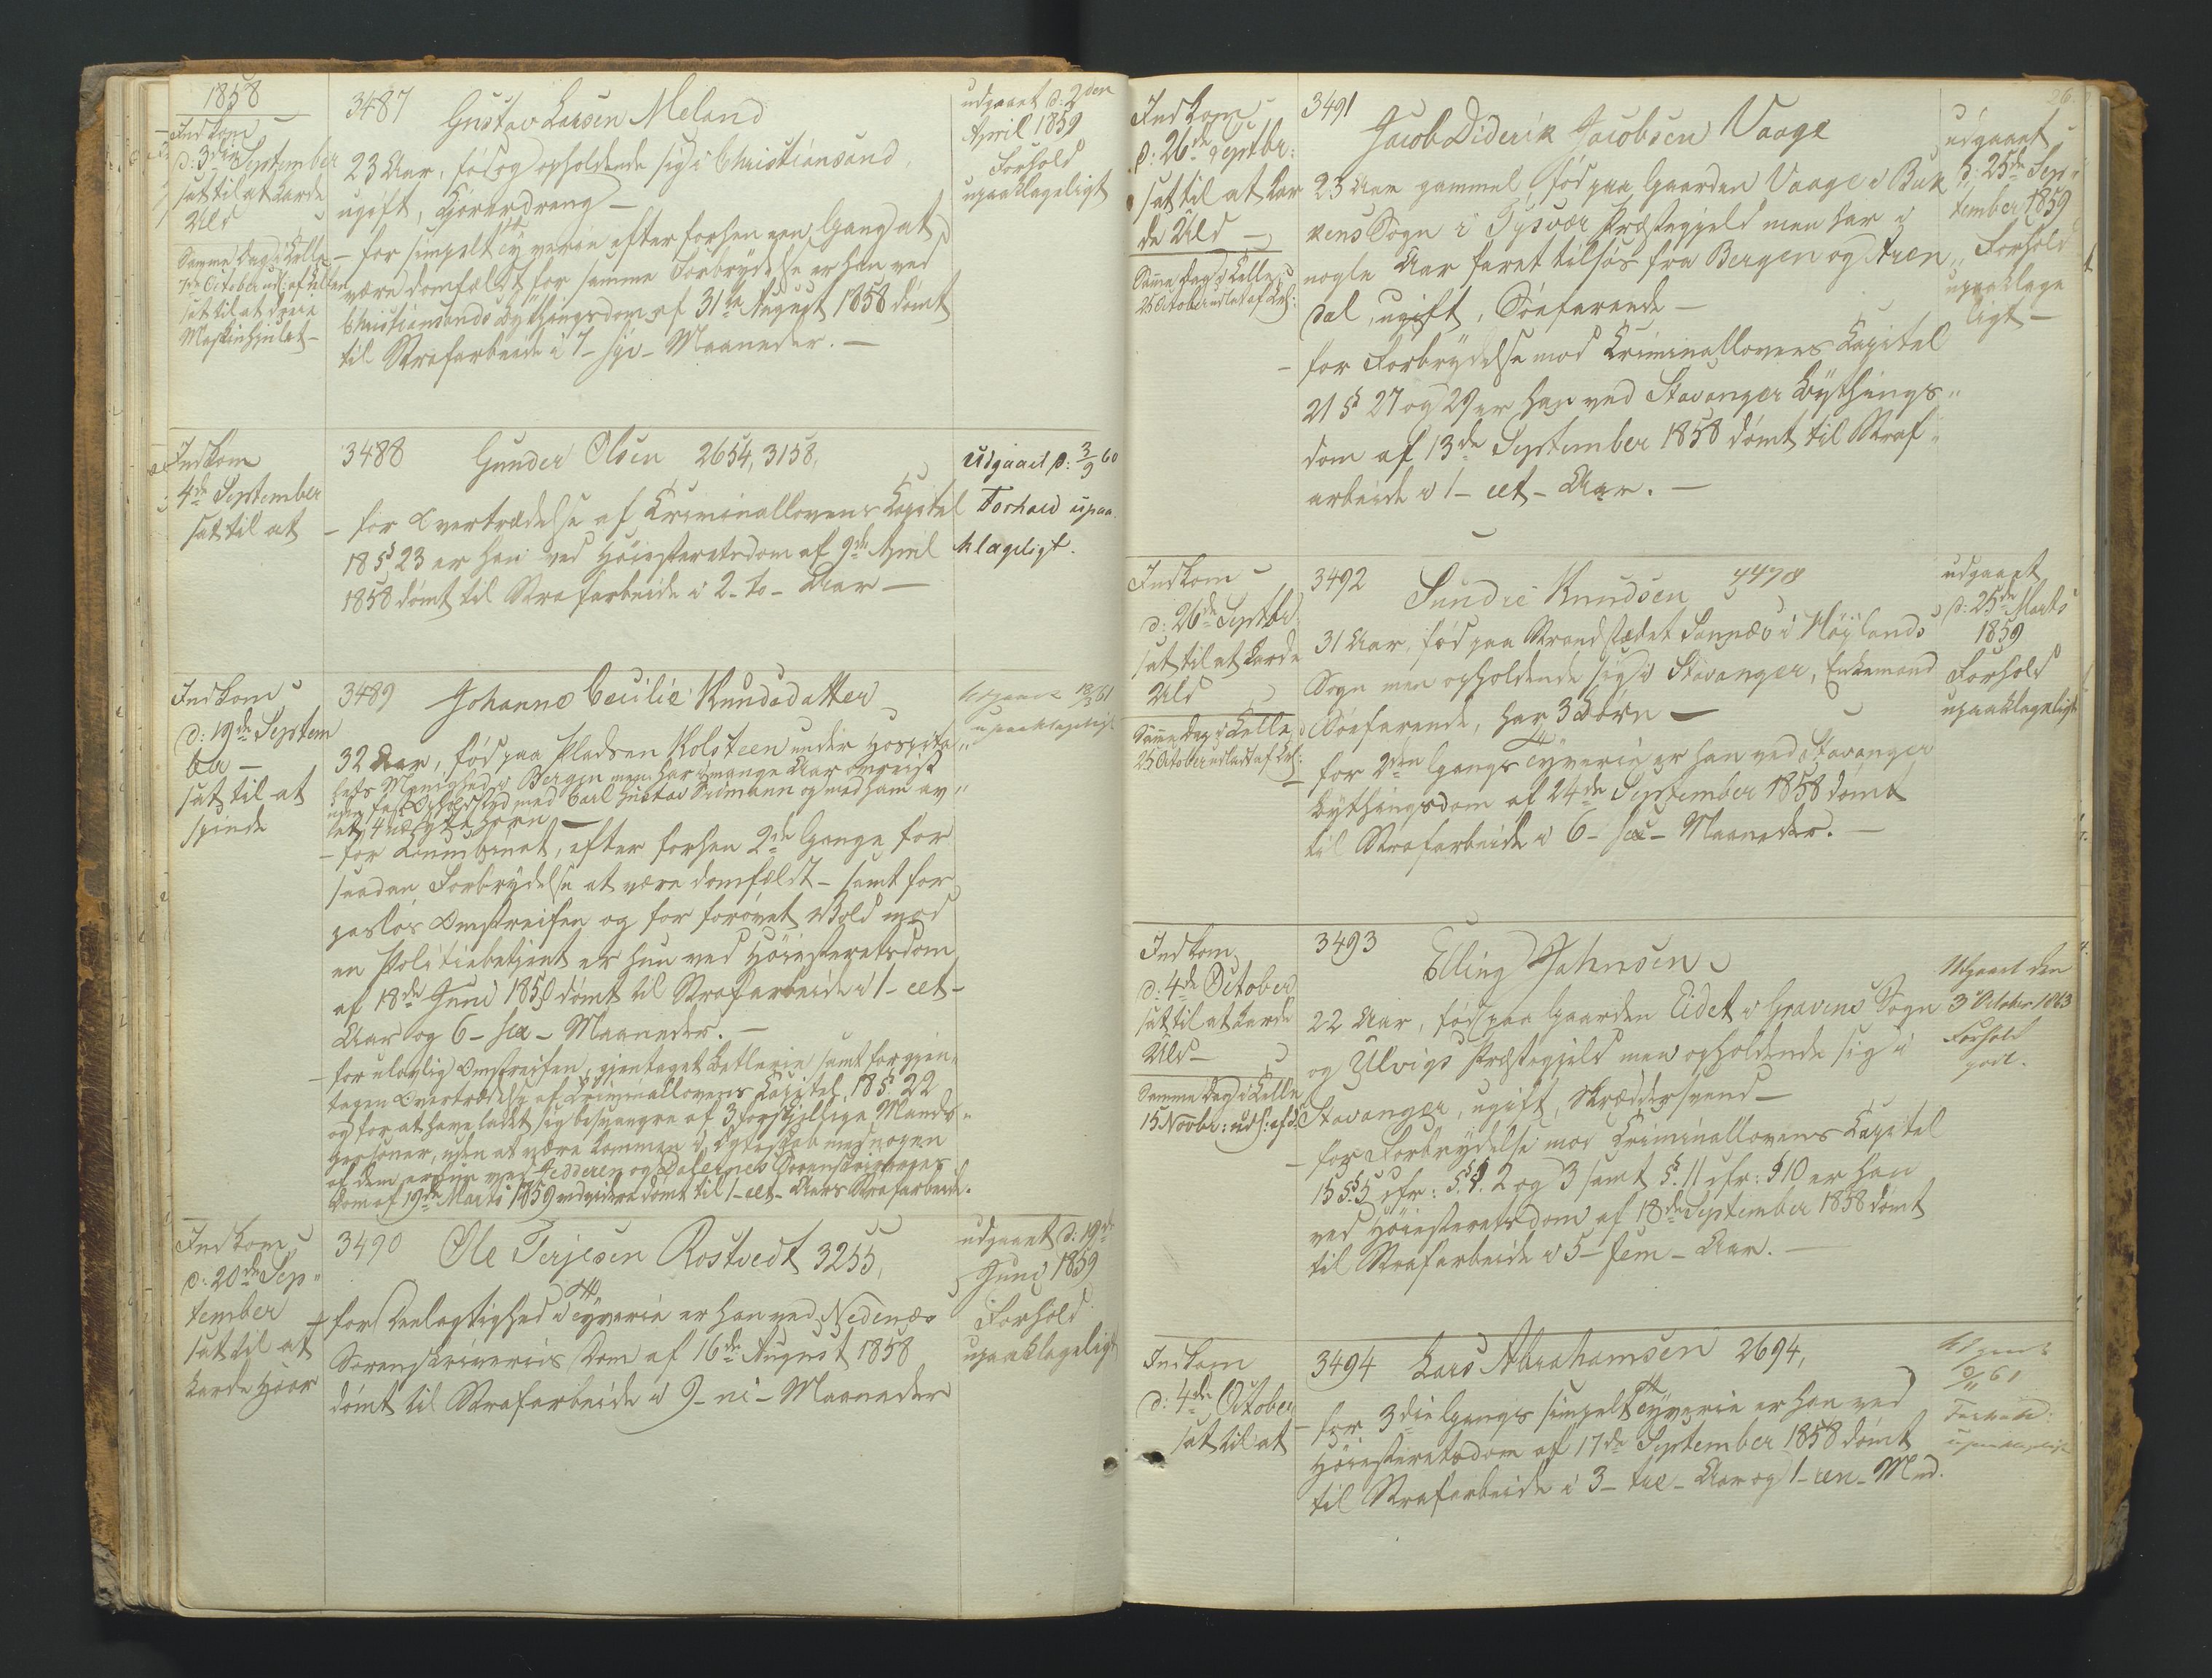 1858
Indkom
d: 3die September
sat til at karde
Uld
Samme Dag i Celle
7de October udl: af Cellen
sat til at dreie
Maskinhjulet –
3487 Gustav Larsen Meland
23 Aar, föd og opholdende sig i Christiansand
ugift, Kjöredreng –
– for simpelt Tyverie efter forhen een Gang at
være domfældt for samme Forbrydelse er han ved
Christiansands Bythingsdom af 31te August 1858 dömt
til Strafarbeide i 7 – syv – Maaneder. –
udgaaet d: 2den
April 1859
Forhold
upaaklageligt
Indkom
4de September
sat til at
3488 Gunder Olsen 2654, 3158,
– for Overtrædelse af Criminallovens Capitel
18 § 23 er han ved Höiesteretsdom af 9de April
1858 dömt til Strafarbeide i 2 – to – Aar –
Udgaaet d: 3/9 60
Forhold upaa
klageligt.
Indkom
d: 19de Septem
ber –
sat til at
spinde
3489 Johanne Cecilie Knudsdatter
32 Aar, föd paa Pladsen Kolsteen under Hospita„
lets Menighed i Bergen men har i mange Aar omreist
uden fast Opholdssted med Carl Gustav Seimann og med ham av„
let 4 uægte Börn –
– for Leiermaal, efter forhen 2de Gange for
saadan Forbrydelse at være domfældt – samt for
paslös Omstreifen og for forövet Vold mod
en Politiebetjent er hun ved Höiesteretsdom
af 18de Juni 1858 dömt til Strafarbeide i 1 – eet –
Aar og 6 – sex – Maaneder. –
– for ulovlig Omstreifen, gjentaget Betlerie samt for gjen„
tagen Overtrædelse af Criminallovens Capitel 18 § 22
og for at have ladet sig besvangre af 3 forskjellige Mands„
personer, uden at være kommen i Ægteskab med nogen
af dem er hun ved Jedderen og Dalernes Sorenskriveries
Dom af 19de Marts 1859 endvidere dömt til 1 – eet – Aars Strafarbeide.
Udgaaet 18/3 61
upaaklageligt
Indkom
d: 20de Sep„
tember
sat til at
karde Haar
3490 Ole Terjesen Rostvedt 3255,
– for Deelagtighed i Tyverie er han ved Nedenæs
Sorenskriveries Dom af 16de August 1858
dömt til Strafarbeide i 9 – ni – Maaneder
udgaaet d: 19de
Juni 1859
Forhold
upaaklageligt
26.
Indkom
d: 26de Septbr:
sat til at kar
de Uld –
Samme Dag i Celle
25 October udladt af Cel:
3491
Jacob Diderik Jacobsen Vaage
23 Aar gammel, föd paa Gaarden Vaage i Buk
kens Sogn i Tysvær Præstegjeld men har i
nogle Aar faret tilsös fra Bergen og Aren„
dal, ugift, Söefarende –
– for Forbrydelse mod Criminallovens Capitel
21 § 27 og 29 er han ved Stavanger Bythings„
dom af 13de September 1858 dömt til Straf„
arbeide i 1 – eet – Aar. –
udgaaet
d: 25de Sep„
tember 1859
Forhold
upaaklage
ligt –
Indkom
d: 26de Septbr
sat til at karde
Uld
Samme Dag i Celle
25 October udladt af Cel:
3492 Sundre Knudsen 4478
31 Aar, föd paa Strandstædet Sannæs i Höylands
Sogn men opholdende sig i Stavanger, Enkemand
Söefarende, har 3 Börn –
– for 2den Gangs Tyverie er han ved Stavanger
Bythingsdom af 24de September 1858 dömt
til Strafarbeide i 6 – sex – Maaneder. –
udgaaet
d: 25de Marts
1859
Forhold
upaaklageligt
Indkom
d: 4de October
sat til at karde
Uld –
Samme Dag i Celle
15 Novbr: udl: af d:
3493 Elling Johnsen
22 Aar, föd paa Gaarden Eidet i Gravens Sogn
og Ulvigs Præstegjeld men opholdende sig i
Stavanger, ugift, Skræddersvend –
– for Forbrydelse mod Criminallovens Capitel
15 § 5 cfr: §§. 2 og 3 samt §. 11 cfr: § 10 er han
ved Höiesteretsdom af 18de September 1858 dömt
til Strafarbeide i 5 – fem – Aar. –
Udgaaet den
3die October 1863
Forhold
godt.
Indkom
d: 4de October
sat til at
3494 Lars Abrahamsen 2694,
– for 3die Gangs simpelt Tyverie er han ved
Höiesteretsdom af 17de September 1858 dömt
til Strafarbeide i 3 – tre – Aar og 1 – een – Mnd.
Udgaaet
/11 61
Forhold:
upaaklageligt